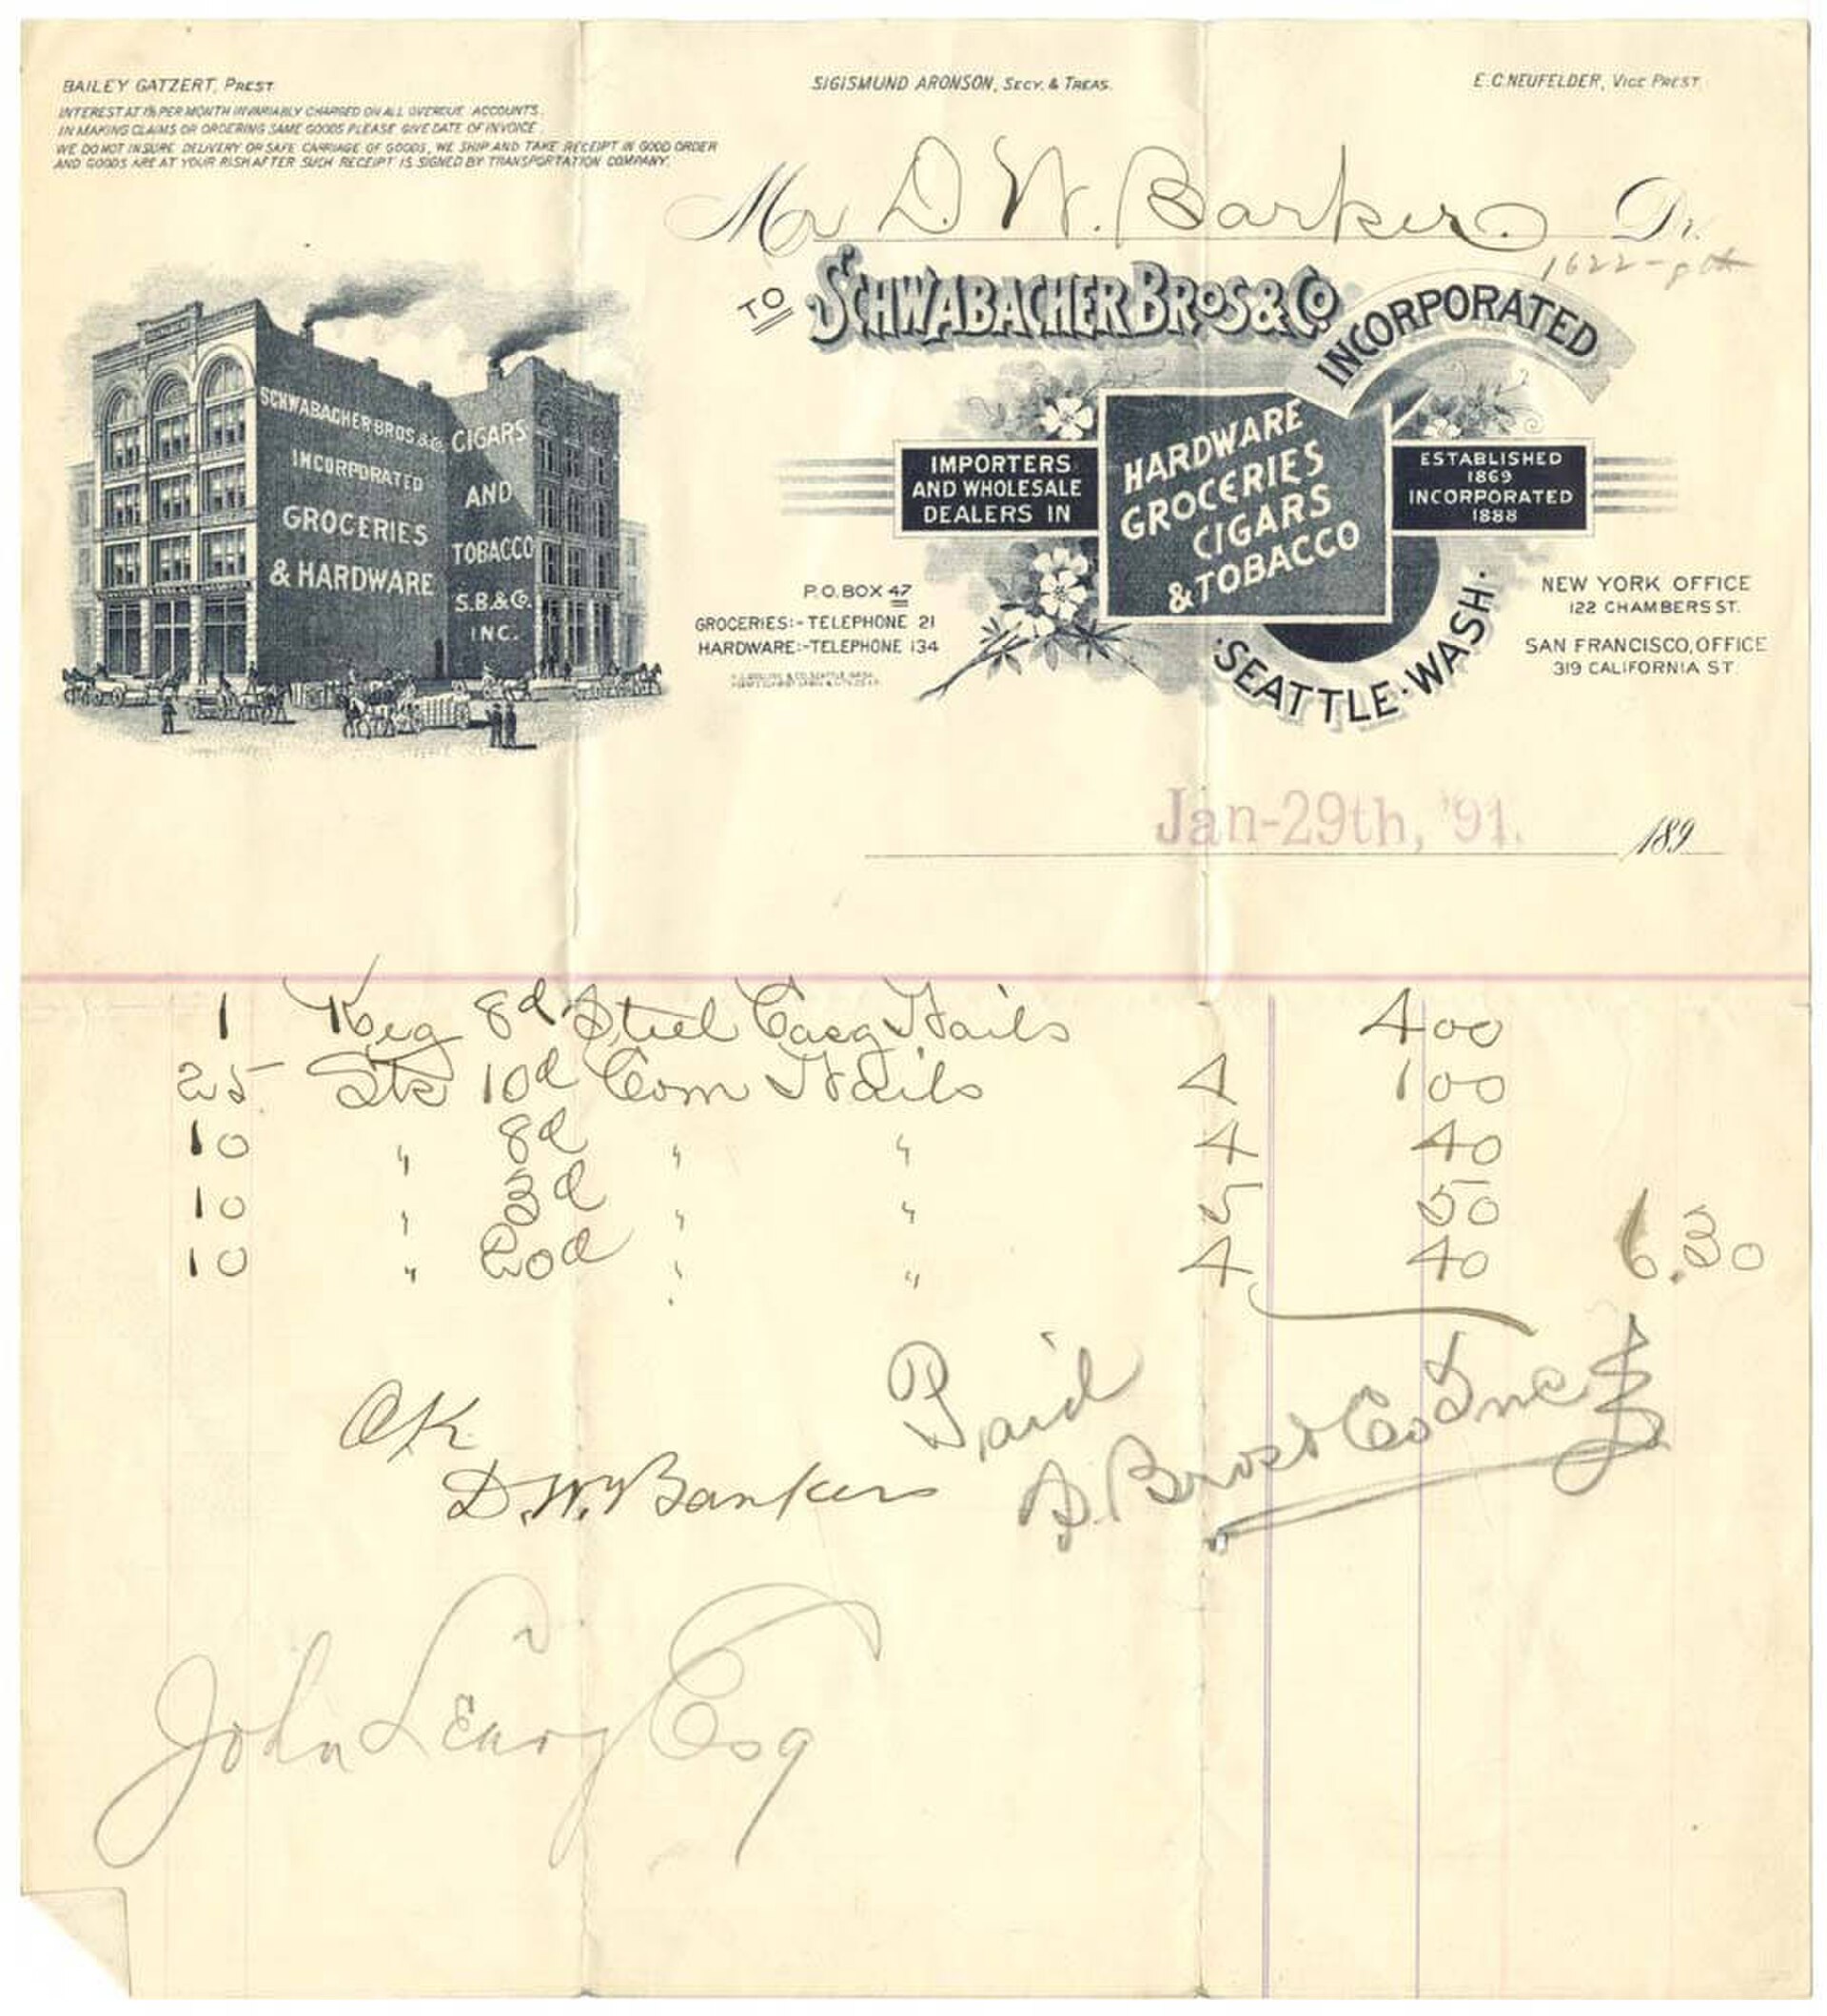 BAILEY GATZERT, PREST.
SIGISMUND ARONSON, SECY. & TREAS.
E.C. NEUFELDER, VICE PREST.
INTEREST AT 1% PER MONTH INVARIABLY CHARGED ON ALL OVERDUE ACCOUNTS.
IN MAKING CLAIMS OR ORDERING SAME GOODS PLEASE GIVE DATE OF INVOICE.
WE DO NOT INSURE DELIVERY OR SAFE CARRIAGE OF GOODS, WE SHIP AND TAKE RECEIPT IN GOOD ORDER
AND GOODS ARE AT YOUR RISK AFTER SUCH RECEIPT IS SIGNED BY TRANSPORTATION COMPANY.
Mr D. W. Barker Dr.
1622
TO SCHWABACHER BROS & CO.
INCORPORATED
SCHWABACHER BROS & CO.
INCORPORATED
GROCERIES
& HARDWARE
CIGARS
AND
TOBACCO
S.B. & CO.
INC.
IMPORTERS
AND WHOLESALE
DEALERS IN
HARDWARE
GROCERIES
CIGARS
& TOBACCO
ESTABLISHED
1869
INCORPORATED
1888
·SEATTLE·WASH·
P.O. BOX 47
GROCERIES:- TELEPHONE 21
HARDWARE:- TELEPHONE 134
NEW YORK OFFICE
122 CHAMBERS ST.
SAN FRANCISCO, OFFICE
319 CALIFORNIA ST.
Jan-29th, '91. 189
1 Keg 8d Steel Casg Nails 4 00
25 Stk 10d Com Nails 4 1 00
10 " 8d " " 4 40
10 " 3d " " 5 50
10 " 20d " " 4 40 6.30
OK
D. W. Barker
Paid
S. Bros & Co Inc
John Leary Esq